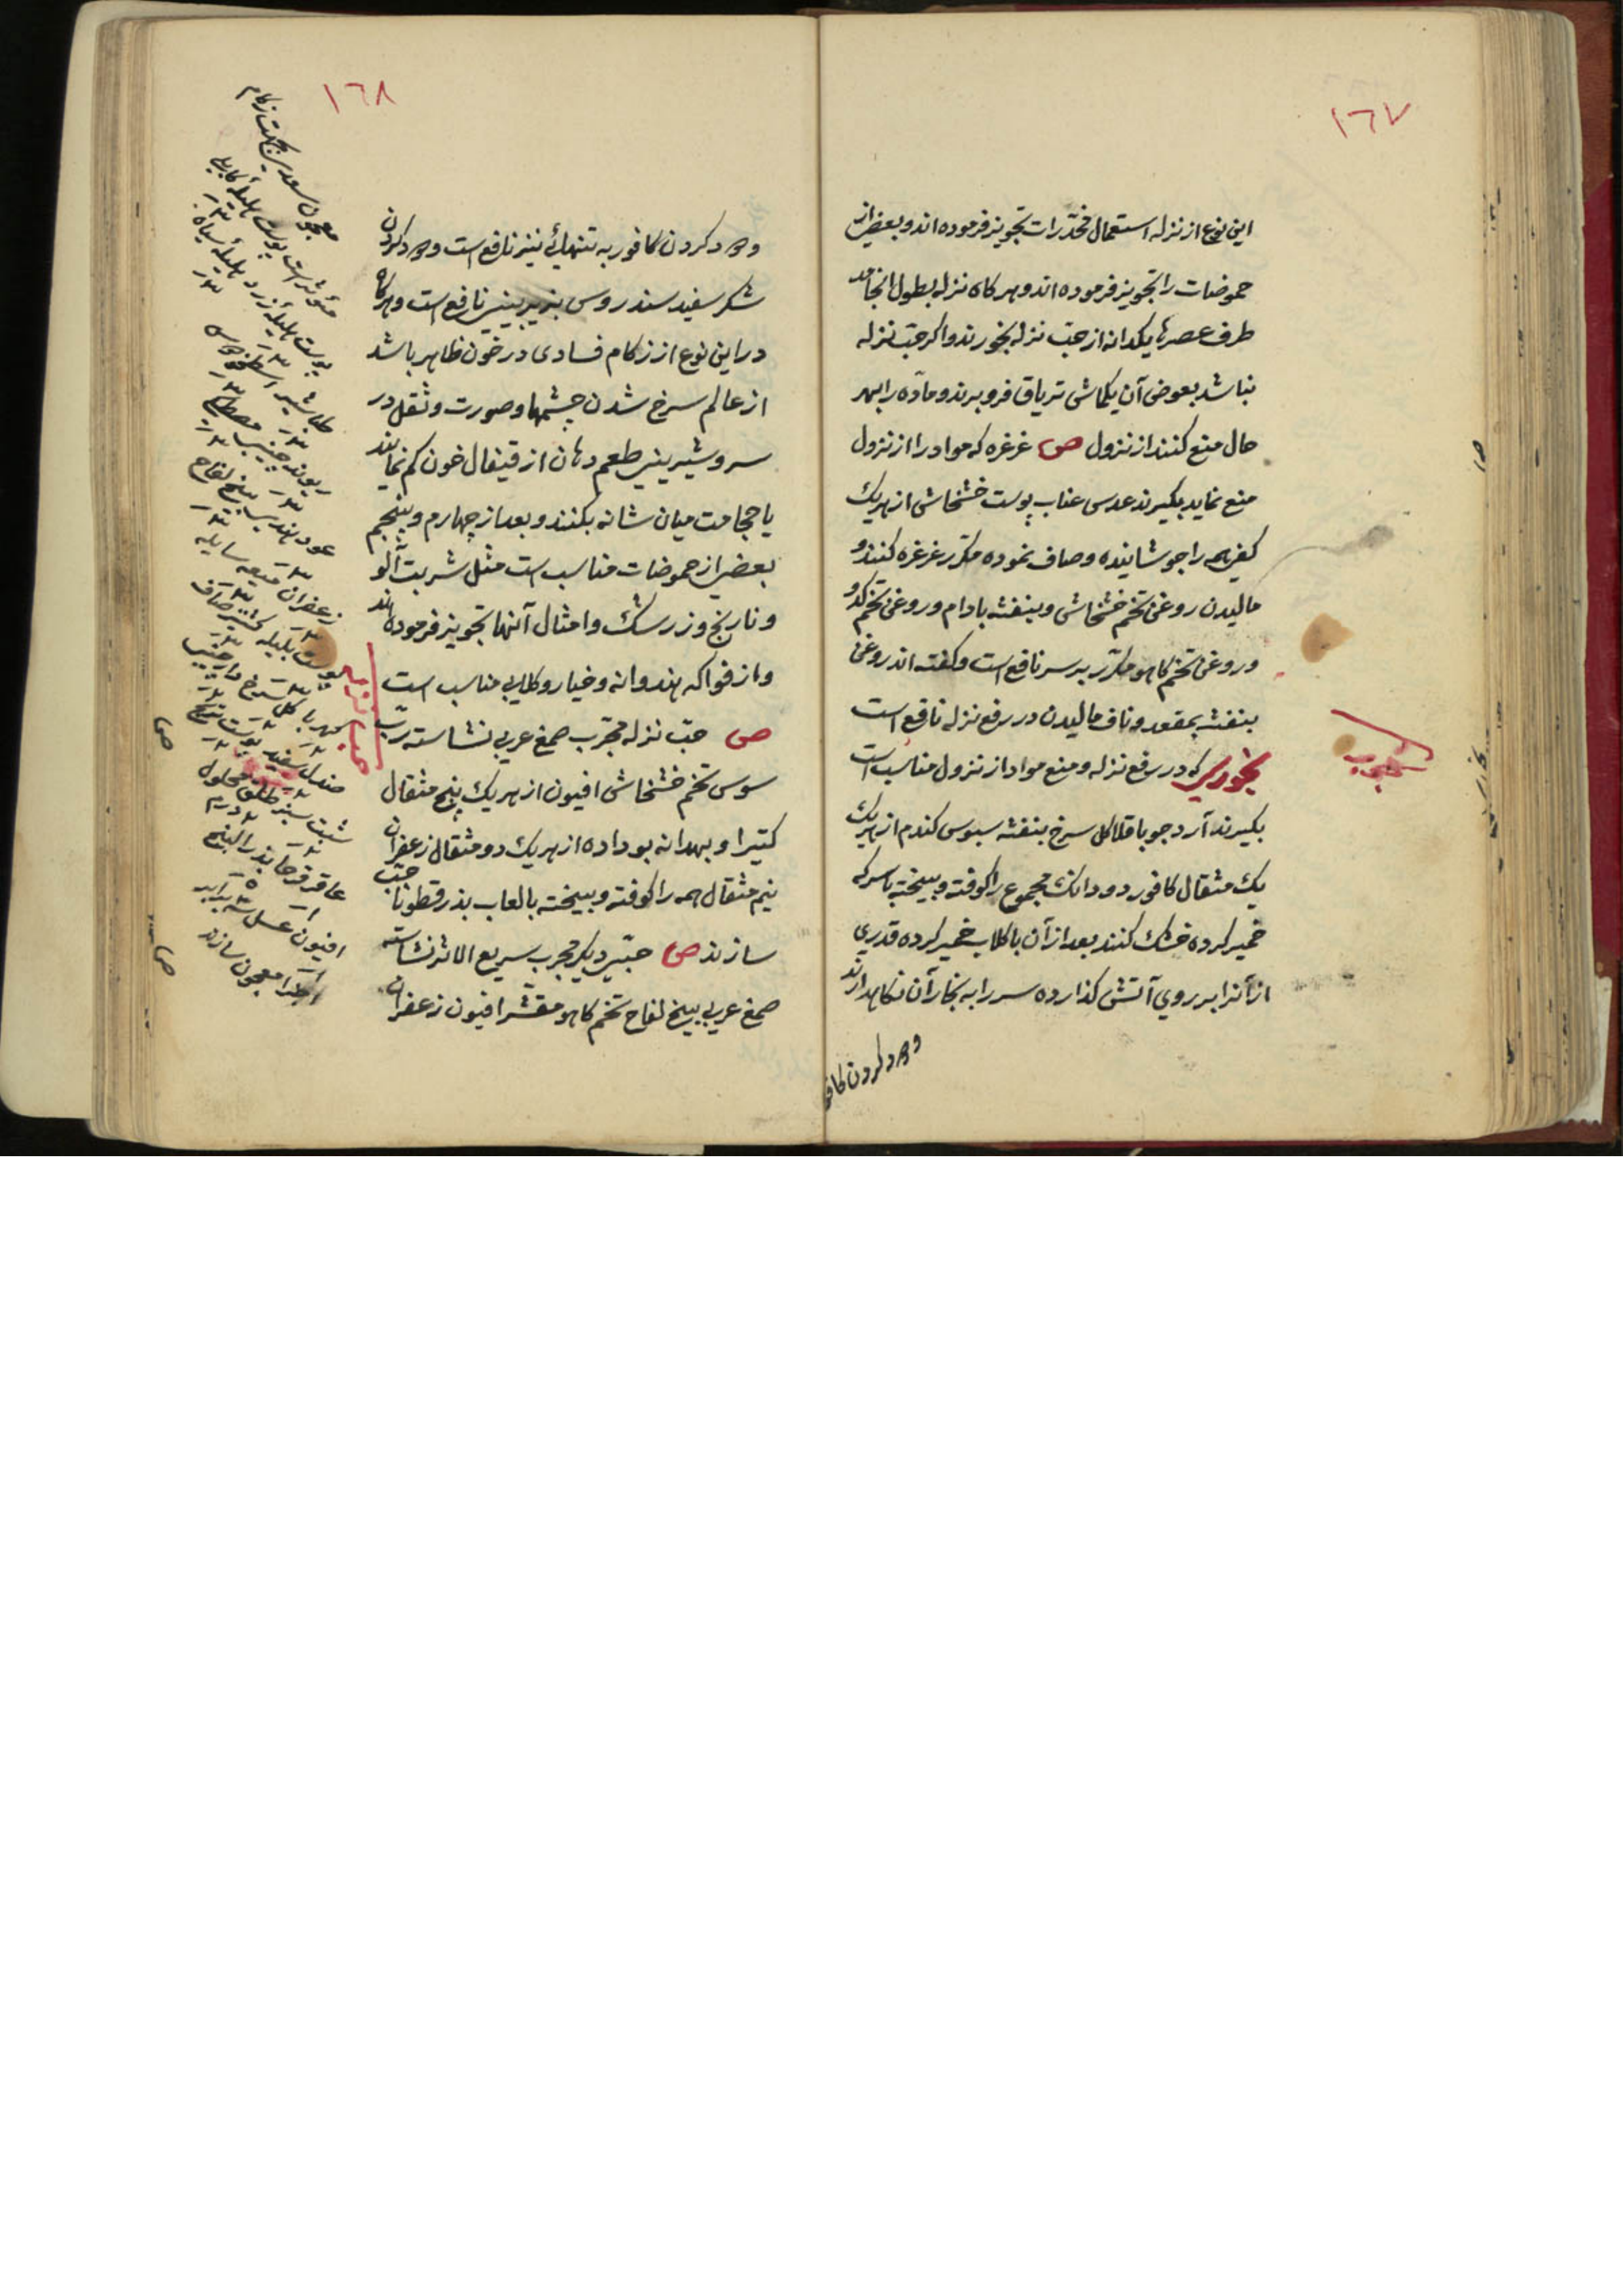 ١٦٧
این نوع از نزله استعمال مخدّرات تجویز فرموده اند و بعضی از
حموضات را تجویز فرموده اند و هرکاه نزله بطول انجامد
طرف عصرها یکدانه از حبّ نزله بخورند و اکر حبّ نزله
نباشد بعوض آن یکماشی تریاق فرو برند و مادّه را بهر
حال منع کنند از نزول ص غرغره که مواد را از نزول
منع نماید بکیرند عدس عناب پوست خشخاش از هریك
کفی همه را جوشانیده و صاف نموده مکرّر غرغره کنند و
مالیدن روغن تخم خشخاش و بنفشه بادام و روغن تخم کدو
و روغن تخم کاهو مکرّر بر سر نافع است و کفته اند روغن
بنفشه بمقعد و ناف مالیدن در رفع نزله نافع است
بخوری که در رفع نزله و منع مواد از نزول مناسب است
مجرب
بکیرند آرد جو باقلا کل سرخ بنفشه سبوس کندم از هریك
یك مثقال کافور دو دانك مجموع را کوفته و بیخته با سرکه
خمیر کرده خشك کنند بعد از آن با کلاب خمیر کرده قدری
از آنرا بر روی آتش کذارده سر را به بخار آن نکاهدارند
و دود کردن کافو
١٦٨
و دود کردن کافور به تنهائی نیز نافع است و دود کردن
شکر سفید سندروس بزیر بینی نافع است و هرکاه
در این نوع از زکام فسادی در خون ظاهر باشد
از عالم سرخ شدن چشمها و صورت و ثقل در
سر و شیرینی طعم دهان از قیفال خون کم نمایند
یا حجامت میان شانه بکنند و بعد از چهارم و پنجم
بعضی از حموضات مناسب است مثل شربت آلو
و نارنج و زرشك و امثال آنها تجویز فرموده اند
و از فواکه هندوانه و خیار و کلابی مناسب است
ص حبّ نزله مجرّب صمغ عربی نشاسته ربّ
سوس تخم خشخاش افیون از هریك پنج مثقال
کتیرا و بهدانه بو داده از هریك دو مثقال زعفران
نیم مثقال همه را کوفته و بیخته بالعاب بذر قطونا حبّ
سازند ص حبّی دیکر مجرب سریع الاثر نشاسته
صمغ عربی بیخ لفاح تخم کاهو مقشّر افیون زعفران
معجون سعدی بجهت زکام
مؤثر است پوست هلیله کابلی
پوست هلیله زرد هلیله سیاه
طباشیر اسطوخودوس
ریوند چینی مصطکی
عود هندی بیخ لفاح
زعفران میعه سایله
پوست بلیله
کهربا کل سرخ دارچینی
صندل سفید پوست
عاقرقرحا بذر البنج
افیون عسل سه برابر
معجون سازند